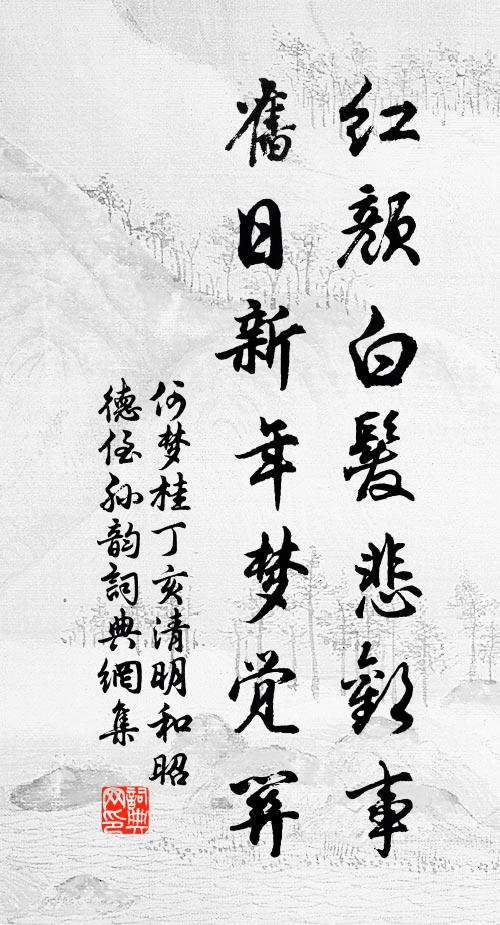 红颜白髮悲歡事
舊日新年梦觉關
何梦桂丁亥清明和昭
德侄孙韵詞典網集
詞典网印